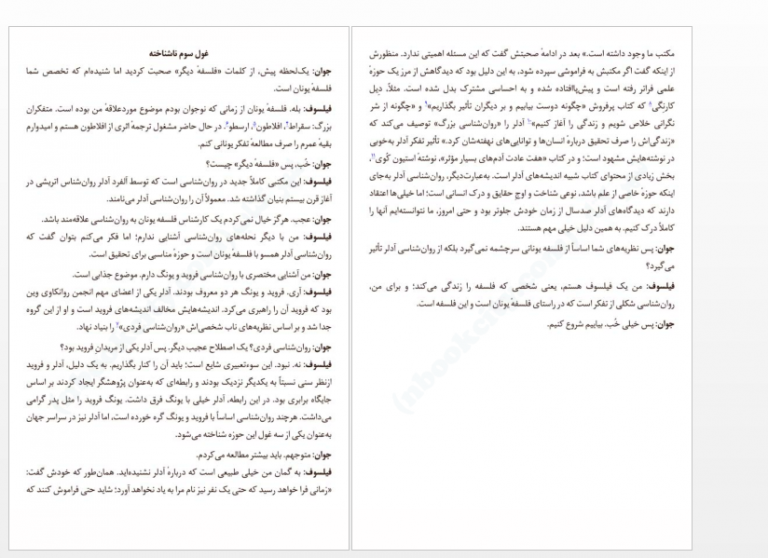 غول سوم ناشناخته
جوان: یک‌لحظه پیش، از کلمات «فلسفهٔ دیگر» صحبت کردید اما شنیده‌ام که تخصص شما
فلسفهٔ یونان است.
فیلسوف: بله. فلسفهٔ یونان از زمانی که نوجوان بودم موضوع موردعلاقهٔ من بوده است. متفکران
بزرگ: سقراط، افلاطون، ارسطو. در حال حاضر مشغول ترجمهٔ اثری از افلاطون هستم و امیدوارم
بقیهٔ عمرم را صرف مطالعهٔ تفکر یونانی کنم.
جوان: خُب، پس «فلسفهٔ دیگر» چیست؟
فیلسوف: این مکتبی کاملاً جدید در روان‌شناسی است که توسط آلفرد آدلر روان‌شناس اتریشی در
آغاز قرن بیستم بنیان گذاشته شد. معمولاً آن را روان‌شناسی آدلر می‌نامند.
جوان: عجب. هرگز خیال نمی‌کردم یک کارشناس فلسفهٔ یونان به روان‌شناسی علاقه‌مند باشد.
فیلسوف: من با دیگر نحله‌های روان‌شناسی آشنایی ندارم؛ اما فکر می‌کنم بتوان گفت که
روان‌شناسی آدلر همسو با فلسفهٔ یونان است و حوزهٔ مناسبی برای تحقیق است.
جوان: من آشنایی مختصری با روان‌شناسی فروید و یونگ دارم. موضوع جذابی است.
فیلسوف: آری. فروید و یونگ هر دو معروف بودند. آدلر یکی از اعضای مهم انجمن روانکاوی وین
بود که فروید آن را راهبری می‌کرد. اندیشه‌هایش مخالف اندیشه‌های فروید است و او از این گروه
جدا شد و بر اساس نظریه‌های ناب شخصی‌اش «روان‌شناسی فردی» را بنیاد نهاد.
جوان: روان‌شناسی فردی؟ یک اصطلاح عجیب دیگر. پس آدلر یکی از مریدان فروید بود؟
فیلسوف: نه. نبود. این سوءتعبیری شایع است؛ باید آن را کنار بگذاریم. به یک دلیل، آدلر و فروید
ازنظر سنی نسبتاً به یکدیگر نزدیک بودند و رابطه‌ای که به‌عنوان پژوهشگر ایجاد کردند بر اساس
جایگاه برابری بود. در این رابطه، آدلر خیلی با یونگ فرق داشت. یونگ فروید را مثل پدر گرامی
می‌داشت. هرچند روان‌شناسی اساساً با فروید و یونگ گره خورده است، اما آدلر نیز در سراسر جهان
به‌عنوان یکی از سه غول این حوزه شناخته می‌شود.
جوان: متوجهم. باید بیشتر مطالعه می‌کردم.
فیلسوف: به گمان من خیلی طبیعی است که دربارهٔ آدلر نشنیده‌اید. همان‌طور که خودش گفت:
«زمانی فرا خواهد رسید که حتی یک نفر نیز نام مرا به یاد نخواهد آورد؛ شاید حتی فراموش کنند که
مکتب ما وجود داشته است.» بعد در ادامهٔ صحبتش گفت که این مسئله اهمیتی ندارد. منظورش
از اینکه گفت اگر مکتبش به فراموشی سپرده شود، به این دلیل بود که دیدگاهش از مرز یک حوزهٔ
علمی فراتر رفته است و پیش‌پاافتاده شده و به احساسی مشترک بدل شده است. مثلاً، دِیل
کارنگی که کتاب پرفروش «چگونه دوست بیابیم و بر دیگران تأثیر بگذاریم» و «چگونه از شر
نگرانی خلاص شویم و زندگی را آغاز کنیم» آدلر را «روان‌شناسی بزرگ» توصیف می‌کند که
«زندگی‌اش را صرف تحقیق دربارهٔ انسان‌ها و توانایی‌های نهفته‌شان کرد.» تأثیر تفکر آدلر به‌خوبی
در نوشته‌هایش مشهود است؛ و در کتاب «هفت عادت آدم‌های بسیار مؤثر»، نوشتهٔ استیون کُوی،
بخش زیادی از محتوای کتاب شبیه اندیشه‌های آدلر است. به‌عبارت‌دیگر، روان‌شناسی آدلر به‌جای
اینکه حوزهٔ خاصی از علم باشد، نوعی شناخت و اوج حقایق و درک انسانی است؛ اما خیلی‌ها اعتقاد
دارند که دیدگاه‌های آدلر صدسال از زمان خودش جلوتر بود و حتی امروز، ما نتوانسته‌ایم آنها را
کاملاً درک کنیم. به همین دلیل خیلی مهم هستند.
جوان: پس نظریه‌های شما اساساً از فلسفهٔ یونانی سرچشمه نمی‌گیرد بلکه از روان‌شناسی آدلر تأثیر
می‌گیرد؟
فیلسوف: من یک فیلسوف هستم، یعنی شخصی که فلسفه را زندگی می‌کند؛ و برای من،
روان‌شناسی شکلی از تفکر است که در راستای فلسفهٔ یونان است و این فلسفه است.
جوان: پس خیلی خُب. بیاییم شروع کنیم.